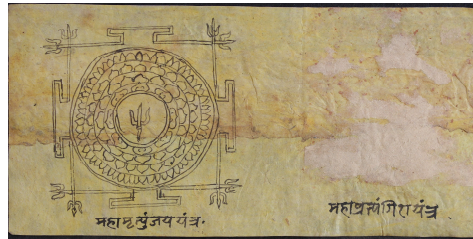 महामृत्युंजय यंत्र.
महाप्रत्यंगिरा यंत्र